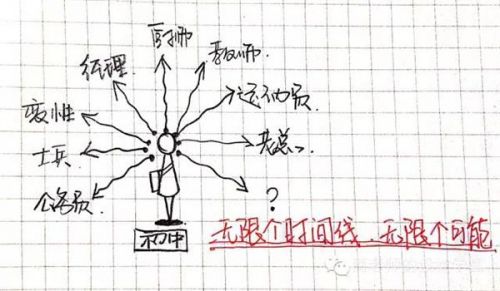 厨师
经理
教师
变性
运动员
士兵
老总
公务员
?
初中
无限个时间线、无限个可能